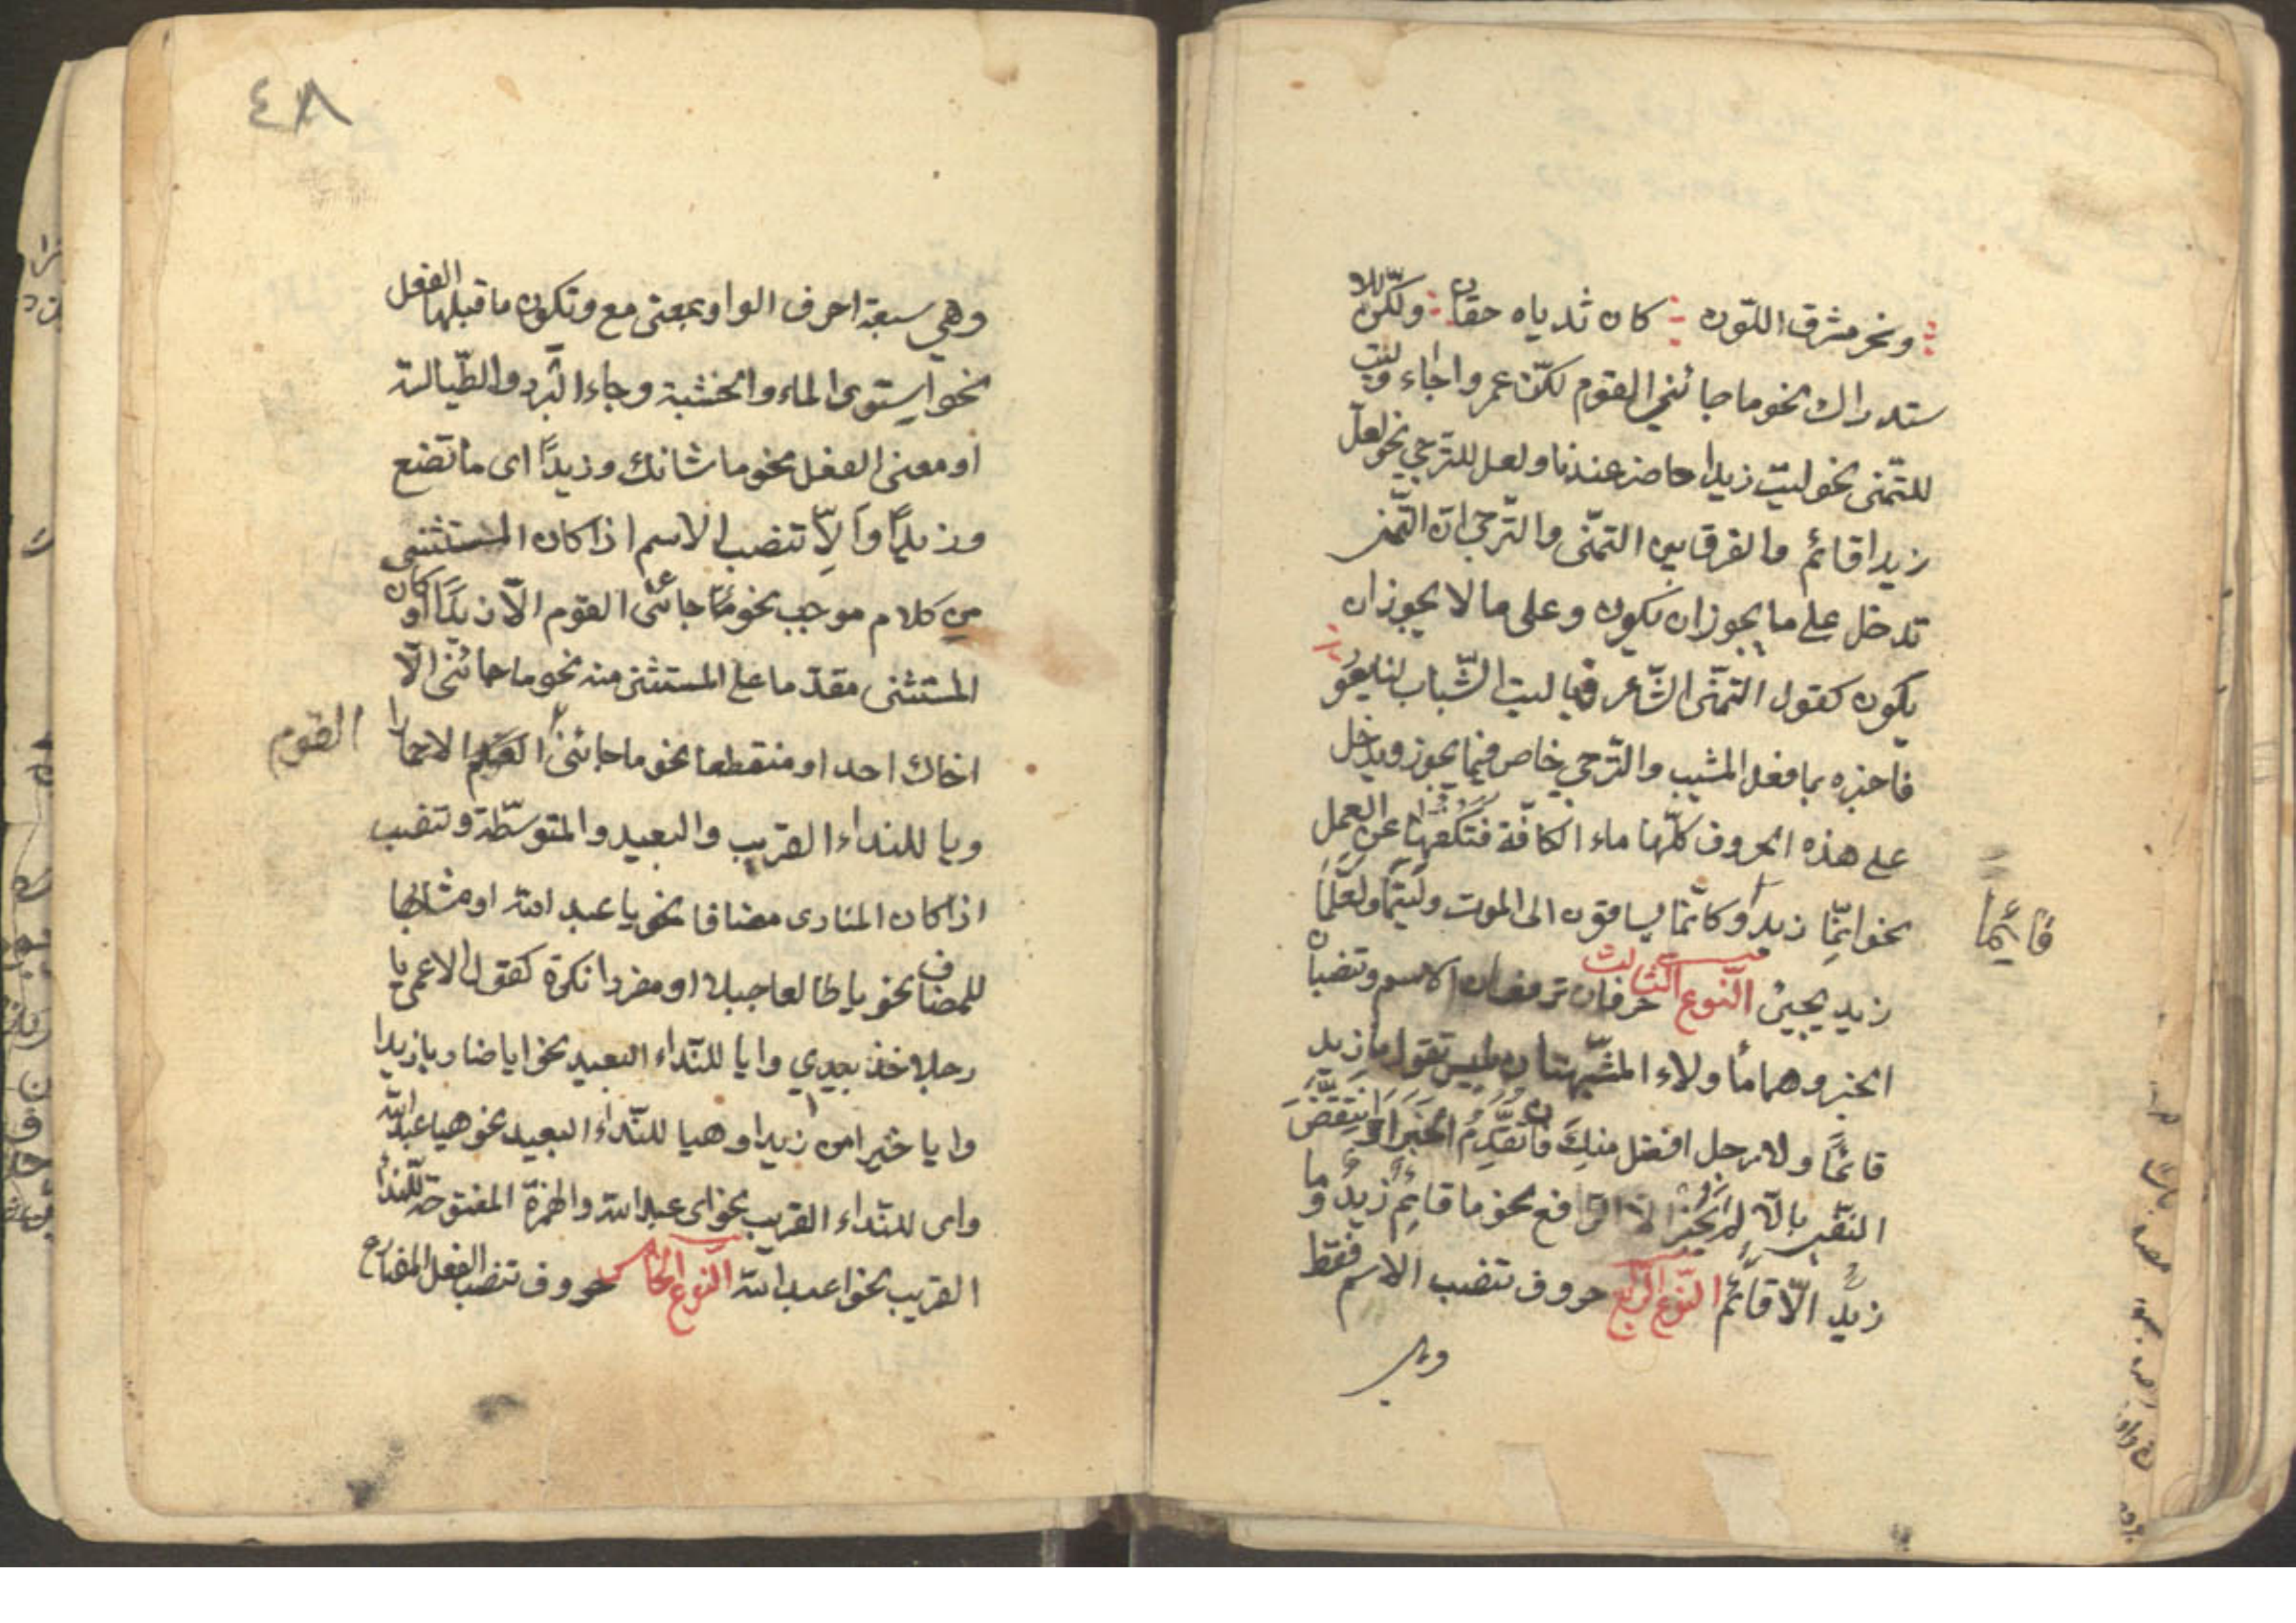 ونحر مشرق اللون كان ثدياه حقان ولكن للا
ستدراك نحو ما جائني القوم لكن عمروا جاء وليت
للتمنى نحو ليت زيدا حاضر عندنا ولعل للترجي نحو لعل
زيدا قائم والفرق بين التمنى والترجى ان التمنى
تدخل على ما يجوز ان يكون وعلى ما لا يجوز ان
يكون كقول التمنى الشاعر فيا ليت الشباب لنا يعود
فاخبره بما فعل المشيب والترجى خاص فيما يجوز ويدخل
على هذه الحروف كلها ماء الكافة فتكفها عن العمل
نحو انما زيد وكانما يساقون الى الموت وليتما ولعلما
قائما
زيد يجيئ النوع الثالث حرفان ترفعان الاسم وتنصبان
الخبر وهما ما ولاء المشبهتان بليس تقول ما زيد
قائما ولا رجل افضل منك فان تقدم الخبر او انتقض
النفى بالا لم يجز الا الرافع نحو ما قائم زيد وما
زيد الا قائم النوع الرابع حروف تنصب الاسم فقط
وهي
٤٨
وهي سبعة احرف الواو بمعنى مع وتكون ما قبلها الفعل
نحو استوى الماء والخشبة وجاء البرد والطيالسة
او معنى الفعل نحو ما شانك وزيدا اى ما تصنع
وزيدا والا تنصب الاسم اذا كان المستثنى
من كلام موجب نحو ما جائنى القوم الا زيدا او كان
المستثنى مقدما على المستثنى منه نحو ما جائنى الا
اخاك احد او منقطعا نحو ما جائنى القوم الا حمارا
القوم
ويا للنداء القريب والبعيد والمتوسطة وتنصب
اذا كان المنادى مضافا نحو يا عبد الله او مشابها
للمضاف نحو يا طالعا جبلا او مفردا نكرة كقول الاعمى يا
رجلا خذ بيدي وايا للنداء البعيد نحو ايا ضاربا زيدا
وايا خيرا من زيدا وهيا للنداء البعيد نحو هيا عبد الله
واى للنداء القريب نحو اى عبد الله والهمزة المفتوحة للنداء
القريب نحو ا عبد الله النوع الخامس حروف تنصب الفعل المضارع